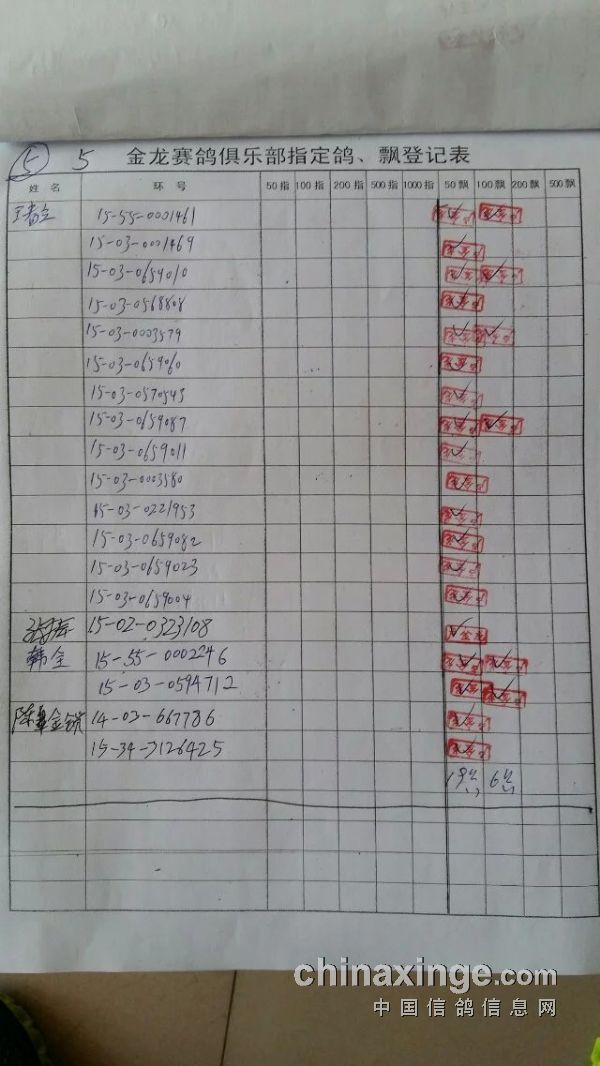 ⑤ 5 金龙赛鸽俱乐部指定鸽、飘登记表
姓名 环号 50指 100指 200指 500指 1000指 50飘 100飘 200飘 500飘
15-55-0001461
15-03-0001469
15-03-0659010
15-03-0568808
15-03-0003579
15-03-0659060
15-03-0570543
15-03-0659087
15-03-0659011
15-03-0003580
15-03-0221953
15-03-0659082
15-03-0659023
15-03-0659004
15-02-0323108
韩全 15-55-0002246
15-03-0594712
14-03-667786
15-34-3126425
19 6
chinaxinge.com
中国信鸽信息网